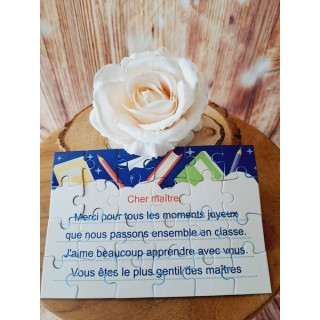 Cher maître,
Merci pour tous les moments joyeux
que nous passons ensemble en classe.
J'aime beaucoup apprendre avec vous.
Vous êtes le plus gentil des maîtres